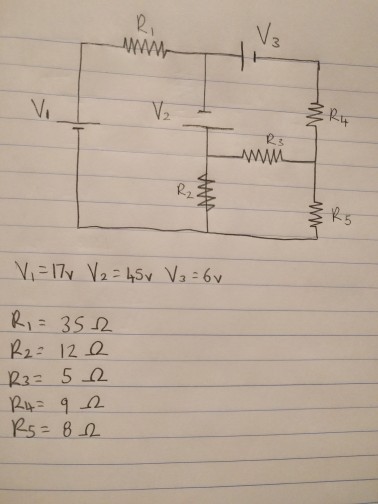 R1
V3
V1
V2
R4
R3
R2
R5
V1=17v V2=45v V3=6v
R1= 35 Ω
R2= 12 Ω
R3= 5 Ω
R4= 9 Ω
R5= 8 Ω